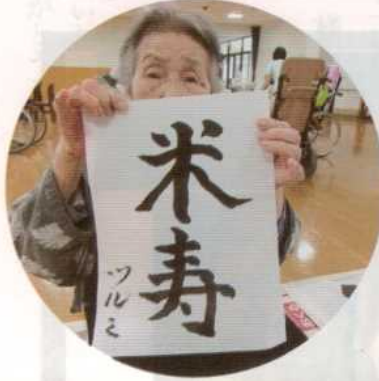 米寿
ツルミ